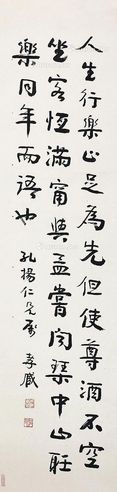 人生行樂止足為先但使尊酒不空
坐客恆滿甯與孟嘗聞琴中山聽
樂同年而語也
孔揚仁兄屬 孝臧